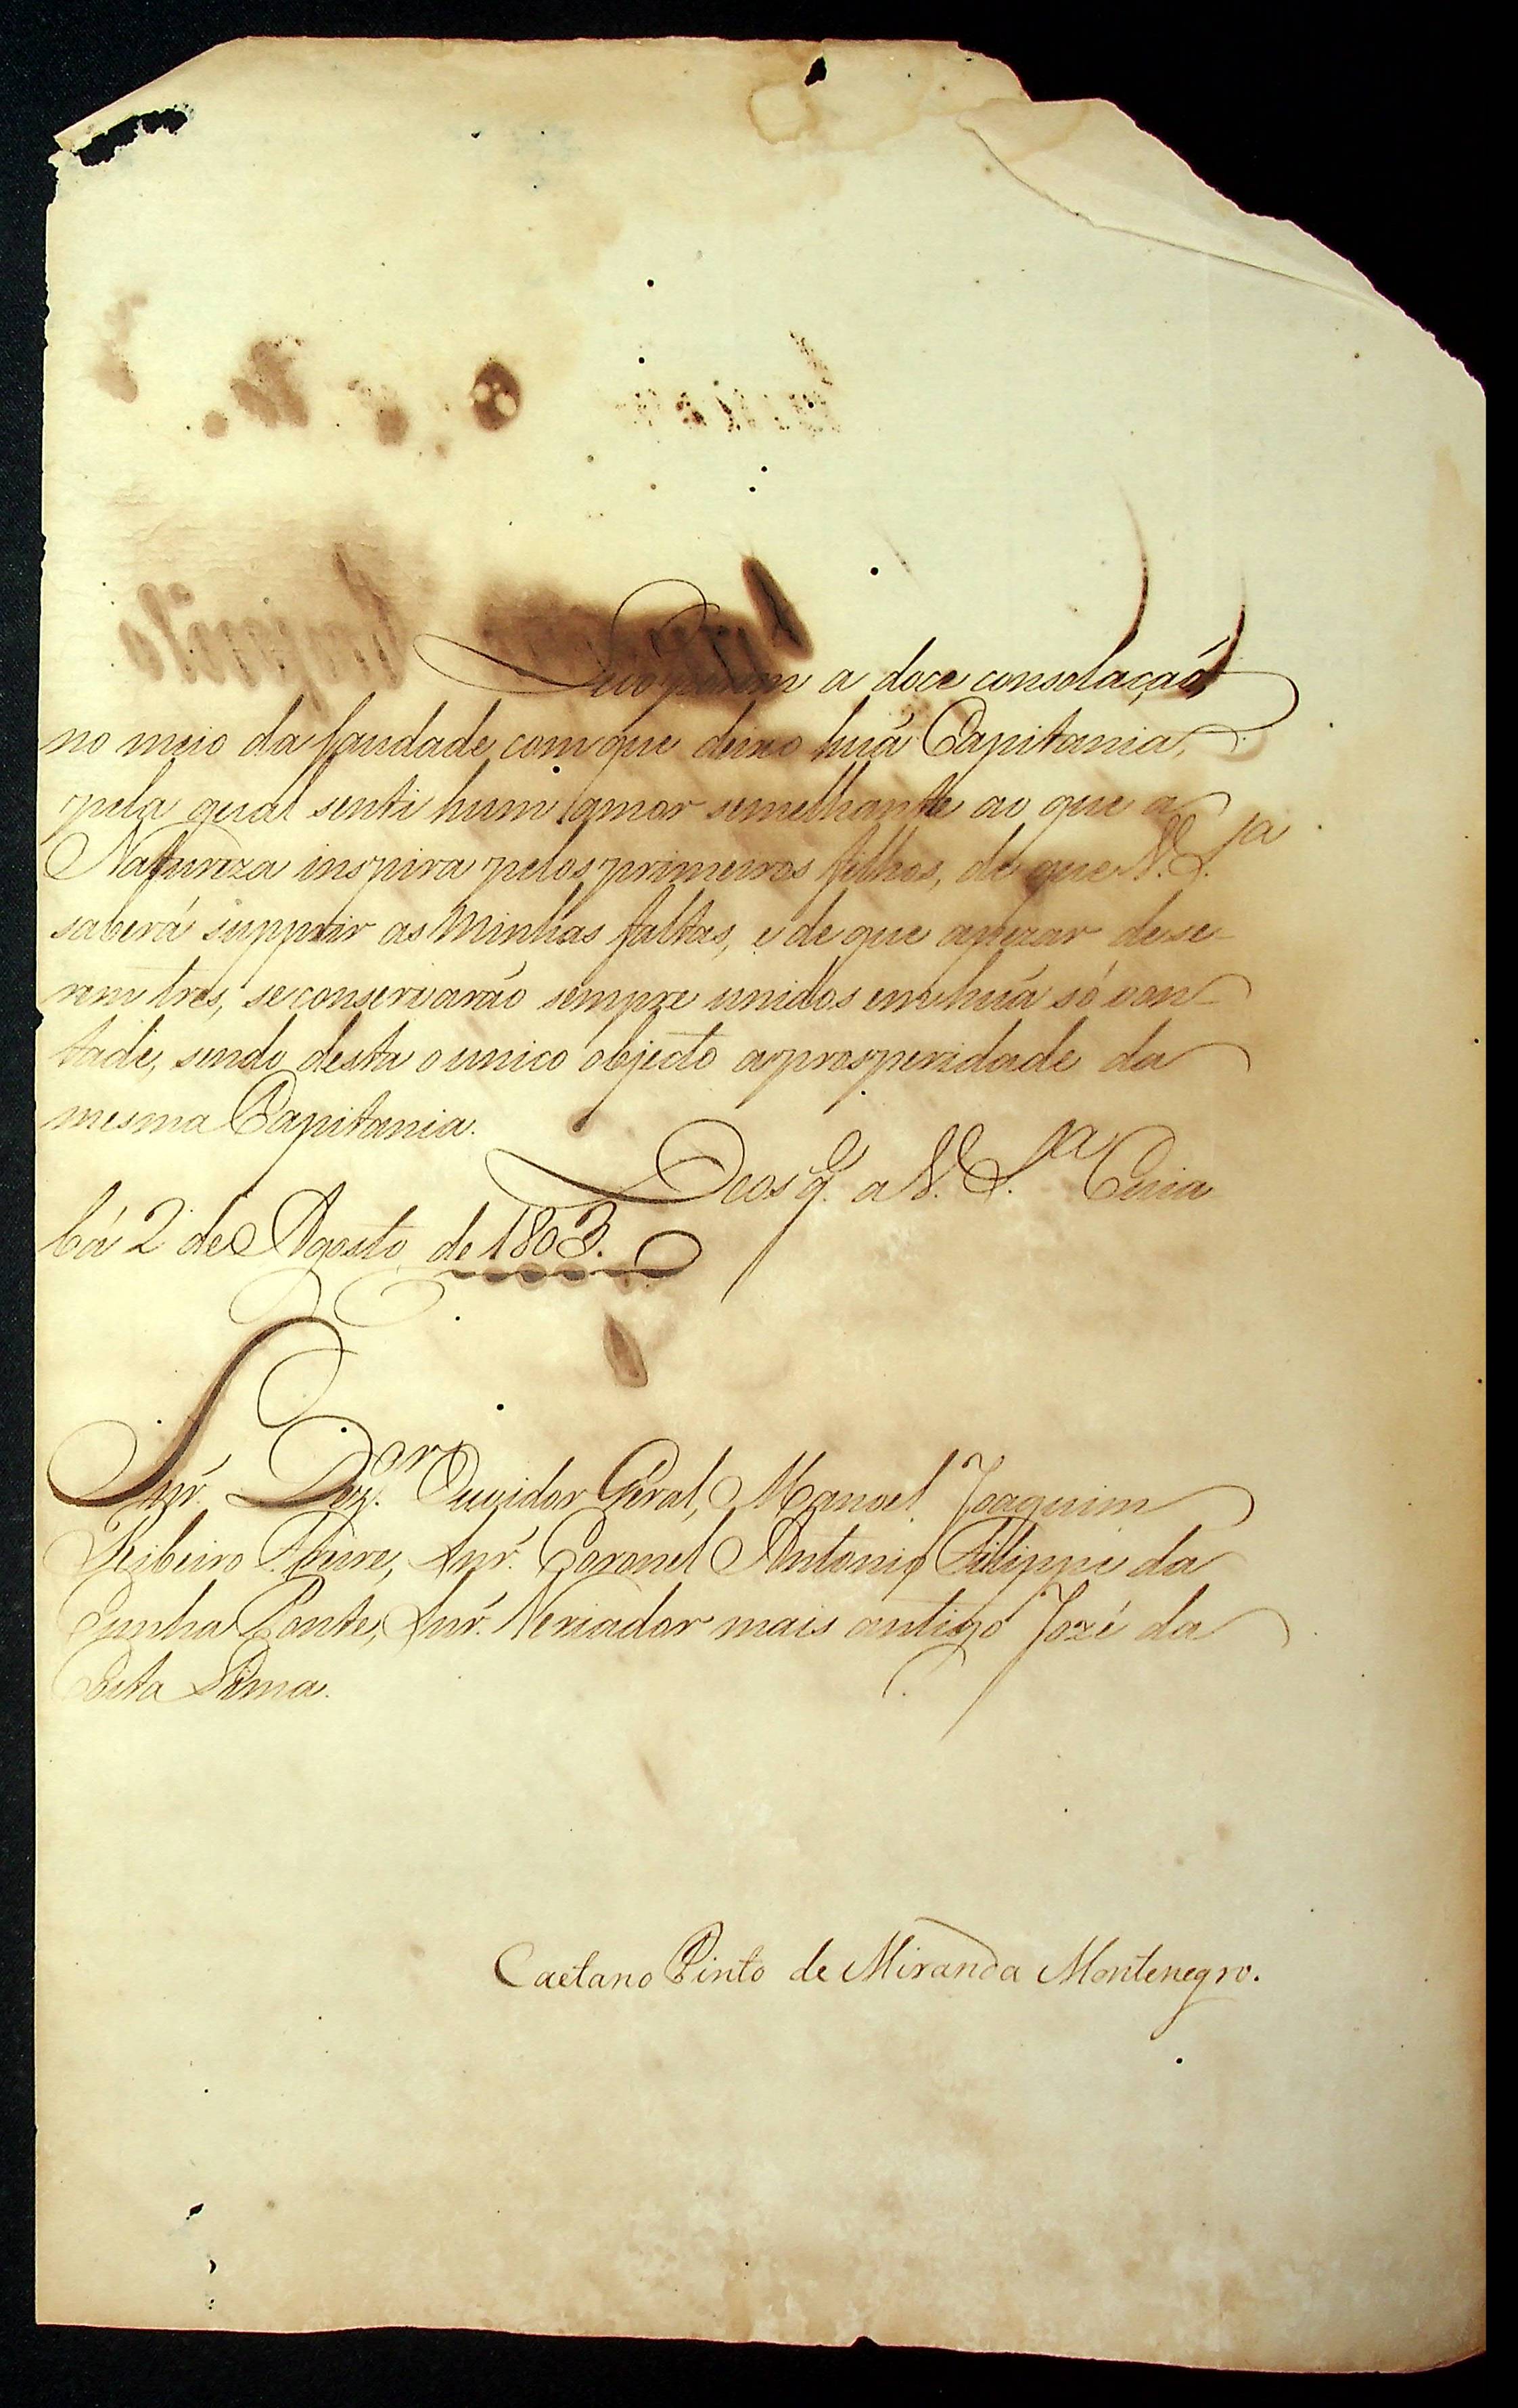 Levo porem a doce consolação
no meio da saudade, com que deixo huã Capitania,
pela qual senti hum amor semelhante ao que a
Natureza inspira pelos primeiros filhos, de que V. S.ª
saberá supprir as Minhas faltas, e de que apezar de se-
rem tres, se conservarão sempre unidos em huã só von-
tade, sendo desta o unico objecto a prosperidade da
mesma Capitania.
Deos g.e a V. S.ª Cuia
bá 2 de Agosto de 1803.
Snr. Dez.or Ouvidor Geral, Manoel Joaquim
Ribeiro Freire, Snr. Coronel Antonio Fillippe da
Cunha Ponte, Snr. Veriador mais antigo Jozé da
Costa Lima.
Caetano Pinto de Miranda Montenegro.